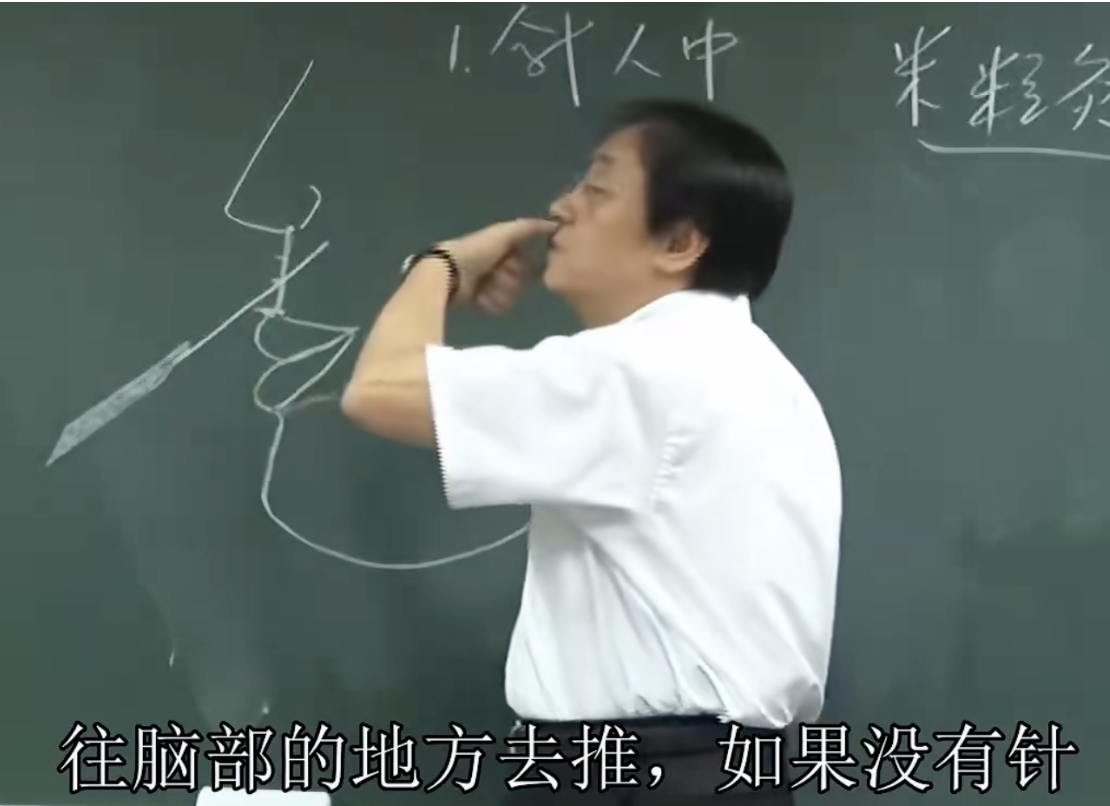 1. 針人中
米粒灸
往脑部的地方去推，如果没有针